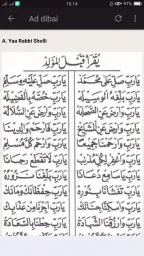 18.14
91%
Ad dibai
A. Yaa Rabbi Sholli
يُقْرَأُ قَبْلَ الْمَوْلِدِ
يَارَبِّ صَلِّ عَلَى مُحَمَّدْ يَارَبِّ صَلِّ عَلَيْهِ وَسَلِّمْ
يَارَبِّ بَلِّغْهُ الْوَسِيْلَةْ يَارَبِّ خُصَّهُ بِالْفَضِيْلَةْ
يَارَبِّ وَارْضَ عَنِ الصَّحَابَةْ يَارَبِّ وَارْضَ عَنِ السُّلَالَةْ
يَارَبِّ وَارْضَ عَنِ الْمَشَايِخْ يَارَبِّ فَارْحَمْ وَالِدِيْنَا
يَارَبِّ وَارْحَمْنَا جَمِيْعًا يَارَبِّ وَارْحَمْ كُلَّ مُسْلِمْ
يَارَبِّ لَا تَقْطَعْ رَجَانَا
يَارَبِّ بَلِّغْنَا نَزُوْرُهْ
يَارَبِّ تَغْشَانَا بِنُوْرِهْ يَارَبِّ حِفْظَانَكْ وَاَمَانَكْ
يَارَبِّ وَاسْكِنَّا جِنَانَكْ يَارَبِّ اَجِرْنَا مِنْ عَذَابِكْ
يَارَبِّ وَارْزُقْنَا الشَّهَادَةْ يَارَبِّ حِطْنَا بِالسَّعَادَةْ